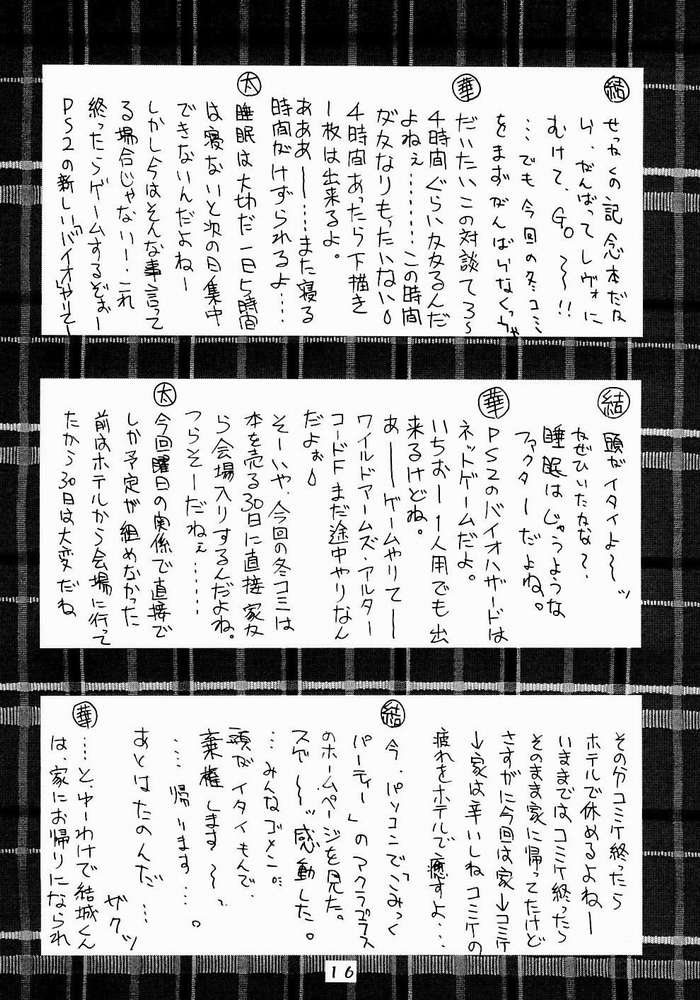 結 せっかくの記念本だな
い、がんばってレヴォに
むけて、GO～～!!
…でも今回の冬コミ
をまずがんばらなくっちゃ
華 だいたいこの対談てろ～
4時間ぐらいなるんだ
よねぇ……この時間
がかなりもったいない
4時間あったら下描き
1枚は出来るよ。
あああー……また寝る
時間がけずられるよ……
太 睡眠は大切だ 一日5時間
は寝ないと次の日集中
できないんだよねー
しかし今はそんな事言って
る場合じゃないー!これ
終ったらゲームするぞぉー
PS2の新しい「バイオ」やりてー
結 頭がイタイよ～～ッ
なぜひいたかな?、
睡眠はじゅうような
ファクターだよね。
華 PS2のバイオハザードは
ネットゲームだよ。
いちおー1人用でも出
来るけどね。
あーーゲームやりてーー
ワイルドアームズ・アルター
コードF まだ途中やりなん
だよぉ
そーいや、今回の冬コミは
本を売る30日に直接家か
ら会場入りするんだよね。
つらそーだねぇ……
太 今回曜日の関係で直接で
しか予定が組めなかった
前はホテルから会場に行って
たから30日は大変だね
その分コミケ終ったら
ホテルで休めるよねー
いままではコミケ終ったら
そのまま家に帰ってたけど
さすがに今回は家→コミケ
→家は辛いしね コミケの
疲れをホテルで癒すよ…
結 今、パソコンで「こみっく
パーティー」のアクラプラス
のホームページを見た。
スゲ～～ッ 感動した。
…みんなゴメン。
頭がイタイもんで、
棄権します～～。
….帰ります….。
あとはたのんだ…
ザクッ
華 …と、ゆーわけで結城くん
は、家にお帰りになられ
16